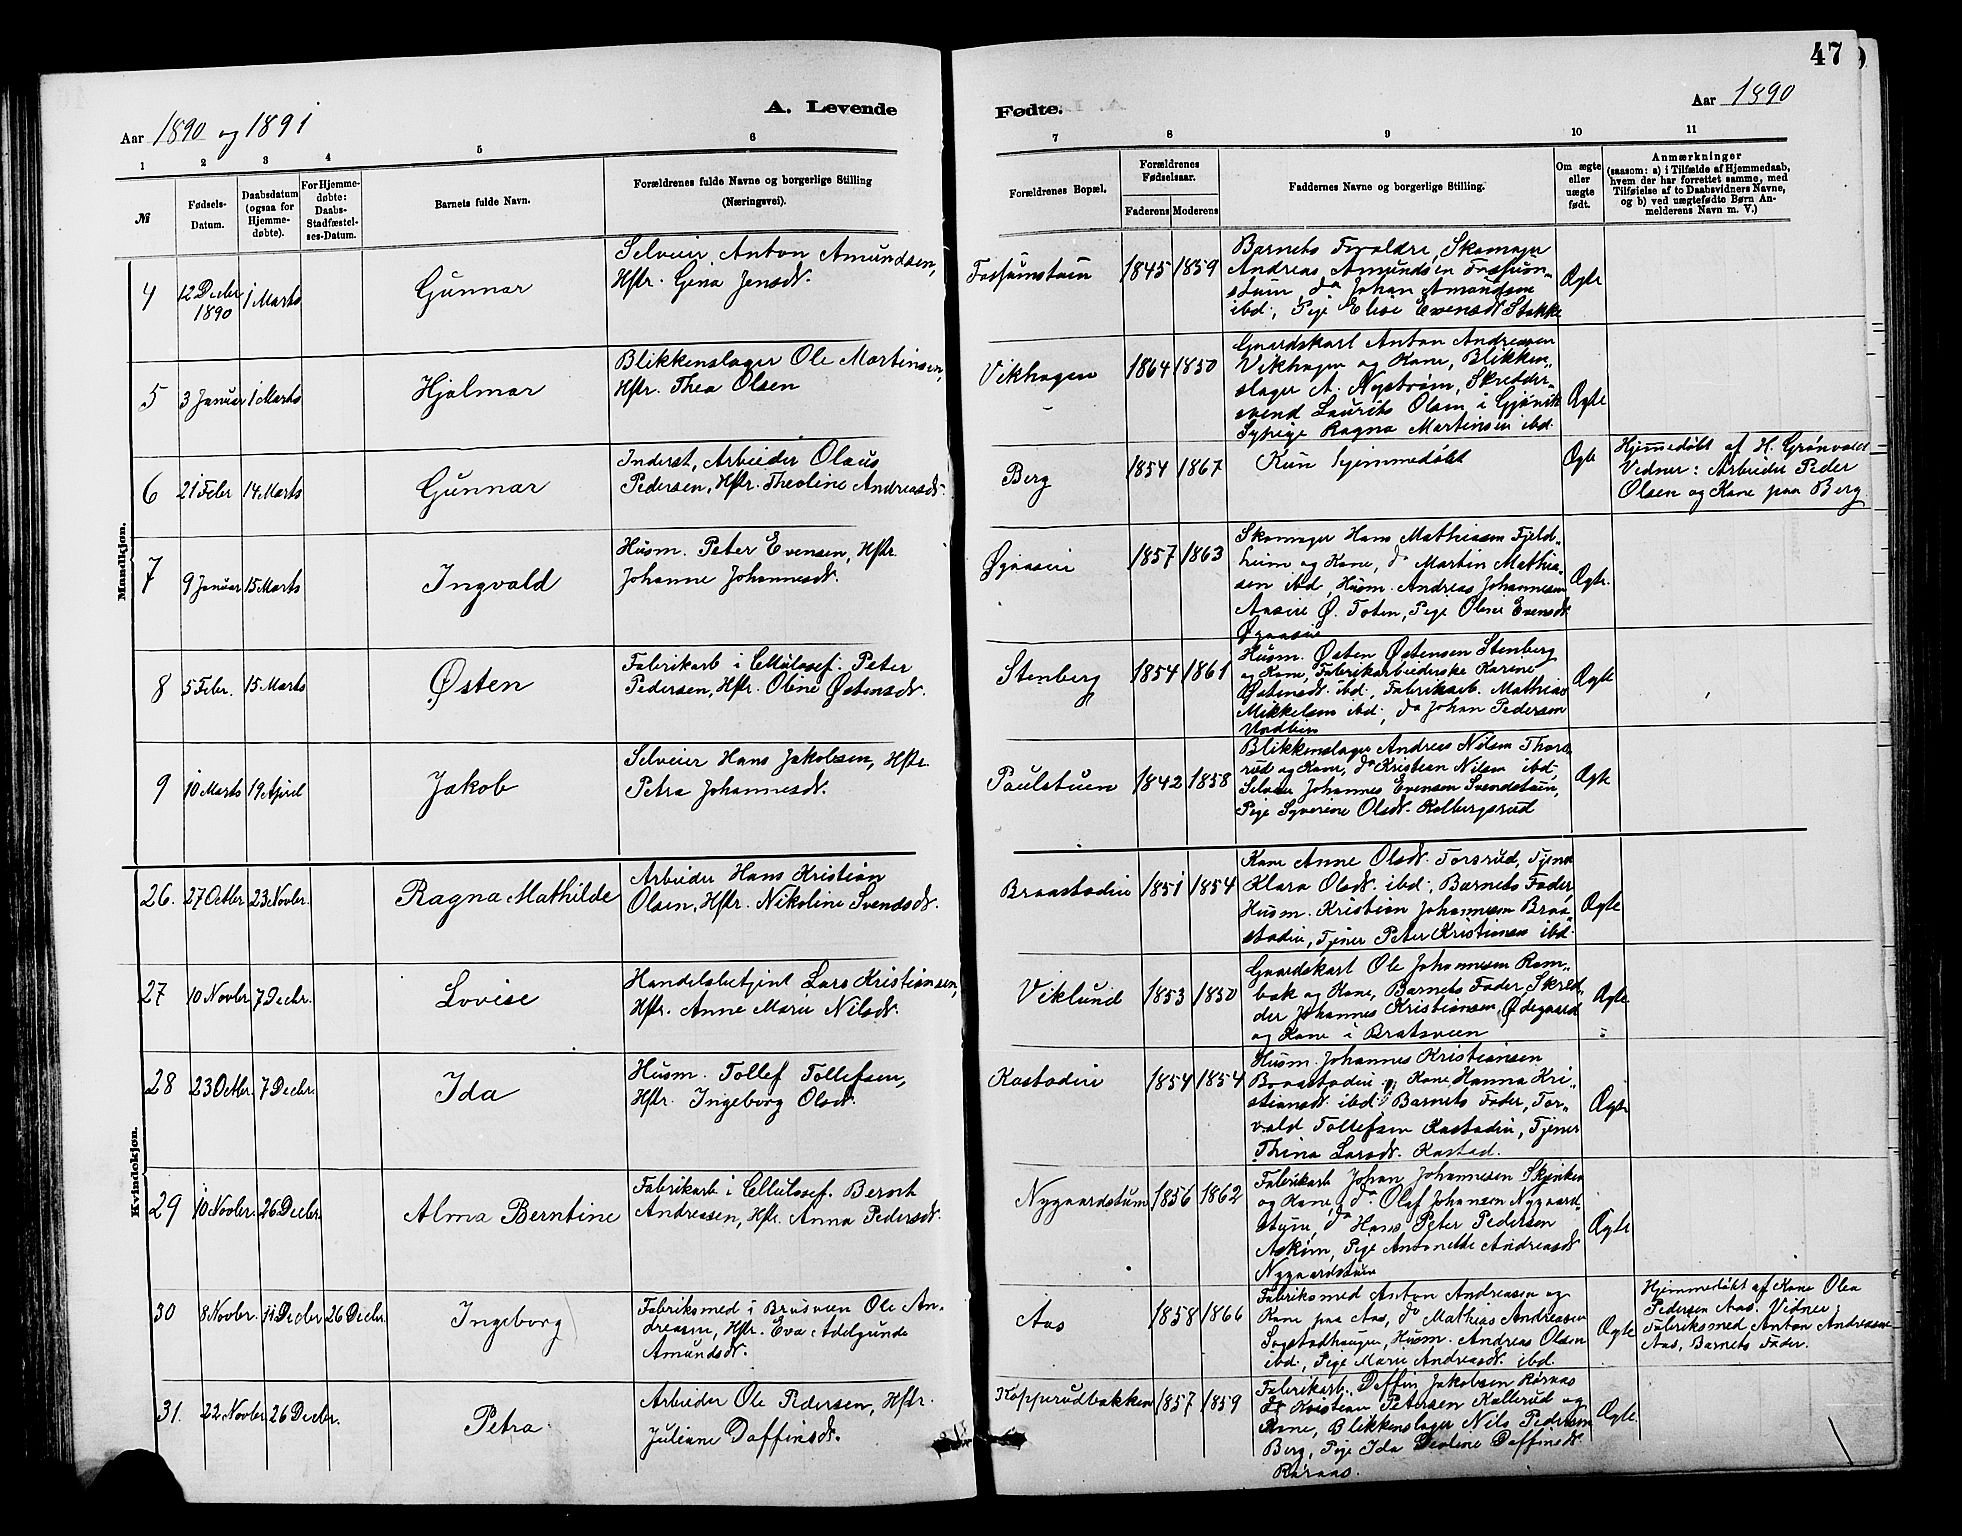 47
Aar 1890 og 1891
A. Levende
Fødte.
Aar 1890
1 2 3 4 5 6 7 8 9 10 11
№
Fødsels-
Datum.
Daabsdatum
(ogsaa for
Hjemme-
døbte).
For Hjemme-
døbte:
Daabs-
Stadfæstel-
ses-Datum.
Barnets fulde Navn.
Forældrenes fulde Navne og borgerlige Stilling
(Næringsvei).
Forældrenes Bopæl.
Forældrenes
Fødselsaar.
Faderens
Moderens
Faddernes Navne og borgerlige Stilling.
Om ægte
eller
uægte
født.
Anmærkninger
(saasom: a) i Tilfælde af Hjemmedaab,
hvem der har forrettet samme, med
Tilføielse af to Daabsvidners Navne,
og b) ved uægtefødte Børn An-
melderens Navn m. V.)
Mandkjøn.
4
12 Decbr
1890
1 Marts
Gunnar
Selveier Anton Amundsen,
Hstr. Gina Jensdt.
Fossumstuen
1845
1859
Barnets Forældre, Skomager
Andreas Amundsen Fossum-
stuen, do Johan Amundsen
ibd., Pige Elise Evensdt Stokke
Ægte
5
3 Januar
1 Marts
Hjalmar
Blikkenslager Ole Martinsen,
Hstr. Thea Olsen
Vikhagen
1864
1850
Gaardskarl Anton Andreasen
Vikhagen og Kone, Blikken-
slager A. Nystrøm, Skrædder-
svend Laurits Olsen i Gjøvik
Sypige Ragna Martinsen ibd.
Ægte
6
21 Febr
14 Marts
Gunnar
Inderst, Arbeider Olaus
Pedersen, Hstr. Theoline Andreasdt.
Berg
1854
1867
Kun hjemmedøbt
Ægte
Hjemmedøbt af H. Grønvold
Vidner: Arbeider Peder
Olsen og Kone paa Berg
7
9 Januar
15 Marts
Ingvald
Husm. Peter Evensen, Hstr
Johanne Johannesdt.
Øgaasen
1857
1863
Skomager Hans Mathiasen Fjeld-
heim og Kone, do Martin Mathia-
sen ibd, Husm. Andreas Johannesen
Aaseie Ø. Toten, Pige Oline Evensdt
Øgaasen
Ægte.
8
5 Febr.
15 Marts
Østen
Fabrikarb i Cellulosef. Peter
Pedersen, Hstr. Oline Østensdt.
Stenberg
1854
1861
Husm. Østen Østensen Stenberg
og Kone, Fabrikarbeiderske Karine
Østensdt ibd., Fabrikarb. Mathias
Mikkelsen ibd., do Johan Pedersen
Ægte
9
10 Marts
19 April
Jakob
Selveier Hans Jakobsen, Hstr
Petra Johannesdt.
Paulstuen
1842
1858
Blikkenslager Andreas Nilsen Thors-
rud og Kone, do Kristian Nilsen ibd.
Selveier Johannes Evensen Svendstuen,
Pige Syverine Olsdt. Kolbergsrud
Ægte
Kvindekjøn.
26.
27 Octbr
23 Novbr.
Ragna Mathilde
Arbeider Hans Kristian
Olsen, Hstr. Nikoline Svendsdt.
Braastadeie
1851
1854
Kone Anne Olsdt. Torsrud, Tjener
Klara Olsdt. ibd., Barnets Fader,
Husm. Kristian Johannesen Braa-
stadeie, Tjener Peter Kristiansen ibd.
Ægte
27
10 Novbr
7 Decbr.
Lovise
Handelsbetjent Lars Kristiansen,
Hstr. Anne Marie Nilsdt.
Viklund
1853
1850
Gaardskarl Ole Johannesen Ram-
bak og Kone, Barnets Fader, Skred-
der Johannes Kristiansen, Ødegaard
og Kone i Bratsveen
Ægte
28
23 Octbr.
7 Decbr.
Ida
Husm. Tollef Tollefsen,
Hstr. Ingeborg Olsdt.
Kastadeie
1854
1854
Husm. Johannes Kristiansen
Braastadeie og Kone, Hanna Kri-
stiansdt. ibd., Barnets Fader, Tor-
vald Tollefsen Kastadeie, Tjener
Thina Larsdt. Kastad.
Ægte
29
10 Novbr.
26 Decbr.
Alma Berntine
Fabrikarb i Cellulosef. Bernt
Andreasen, Hstr. Anna Pedersdt.
Nygaardstuen
1856
1862
Fabrikarb Johan Johannesen Skjenken
og Kone, do. Olaf Johansen Nygaard-
stuen, do Hans Peter Pedersen
Askim, Pige Antonette Andreasdt
Nygaardstuen
Ægte
30
8 Novbr.
11 Decbr
26 Decbr.
Ingeborg
Fabriksmed i Brusveen Ole An-
dreasen, Hstr. Eva Adelgunde
Amundsdt.
Aas
1858
1866
Fabriksmed Anton Andreasen og
Kone paa Aas, do Mathias Andreasen
Sogstadhaugen, Husm. Andreas Olsen
ibd., Pige Marie Andreasdt. ibd.
Ægte
Hjemmedøbt af Kone Olea
Pedersen Aas. Vidner:
Fabriksmed Anton Andreasen
Aas, Barnets Fader.
31.
22 Novbr
26 Decbr.
Petra
Arbeider Ole Pedersen, Hstr.
Juliane Daffinsdt.
Kopperudbakken
1857
1859
Fabrikarb. Deffin Jakobsen Røraas
do Kristian Petersen Kallerud og
Kone, Blikkenslager Nils Pedersen
Berg, Pige Ida Deoline Daffinsdt
Røraas.
Ægte